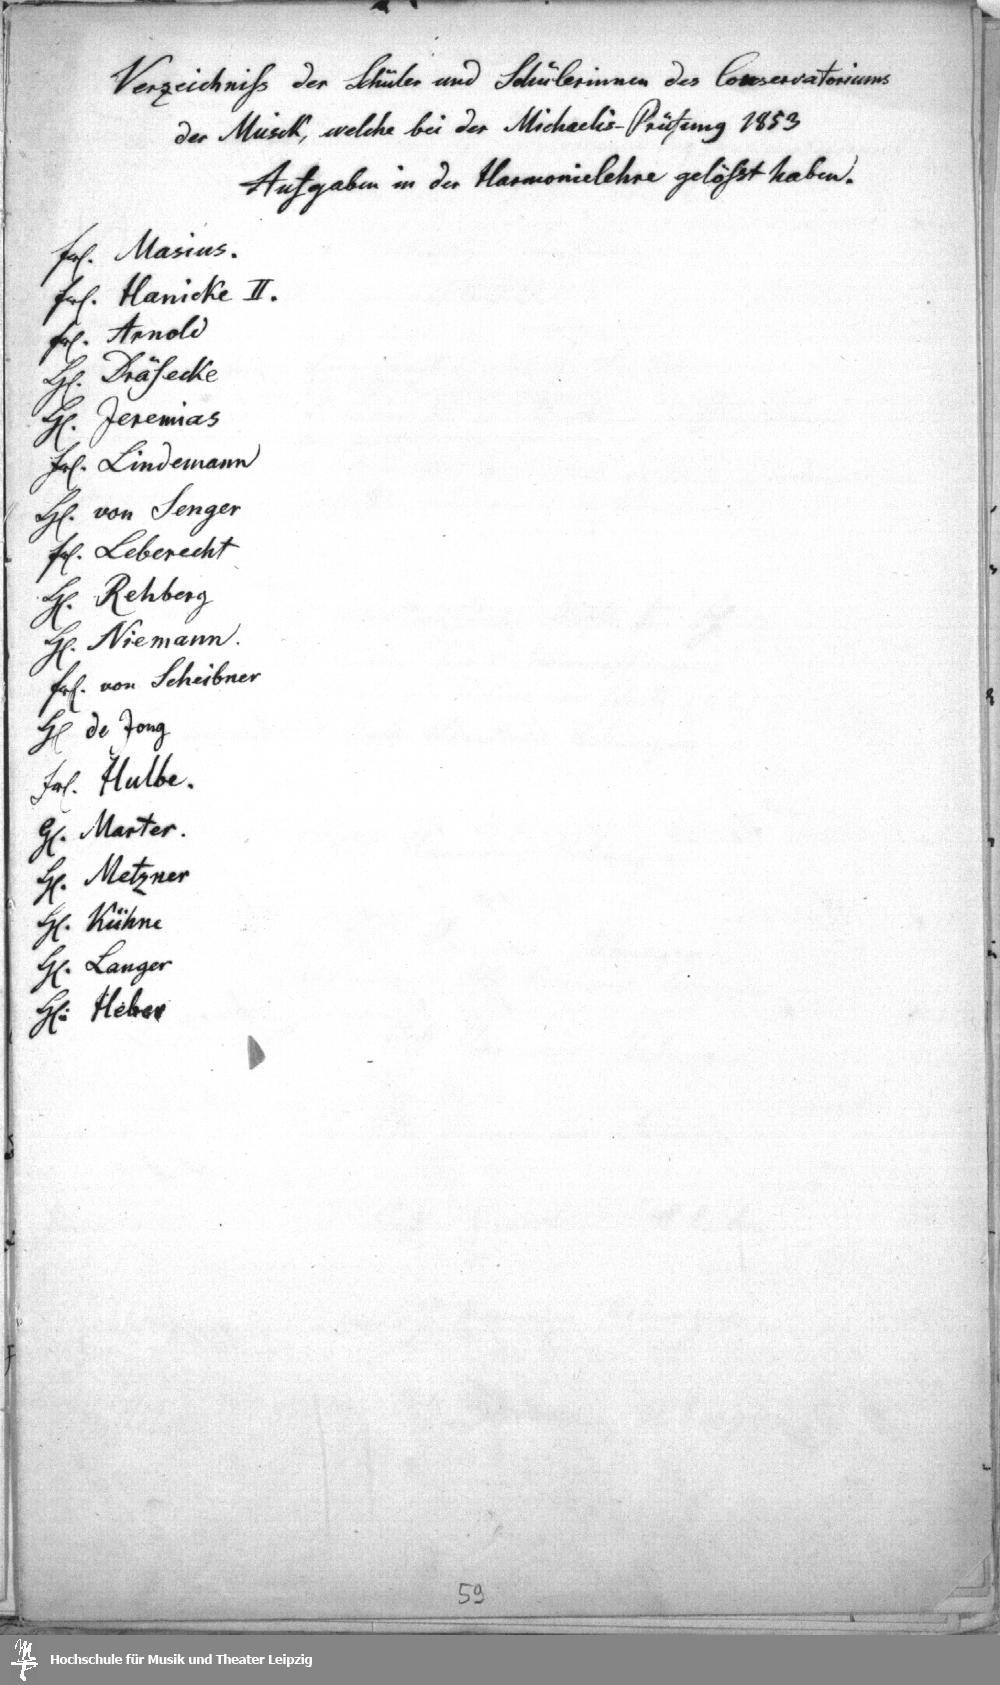 Verzeichniſs der Schüler und Schülerinnen des Conservatoriums
der Musik, welche bei der Michaelis-Prüfung 1853
Aufgaben in der Harmonielehre gelöſst haben.
Frl. Masius.
Frl. Hanicke II.
Frl. Arnold
H. Dräsecke
H. Jeremias
Frl. Lindemann
H. von Senger
Frl. Leberecht
H. Rehberg
H. Niemann.
Frl. von Scheibner
H de Jong
Frl. Hulbe.
H. Marter.
H. Metzner
H. Kühne
H. Langer
H. Heber
59
Hochschule für Musik und Theater Leipzig